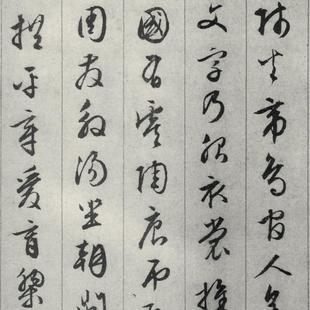 師火帝鳥官人皇
文字乃服衣裳推
國有虞陶唐弔
周發殷湯坐朝問
拱平章愛育黎